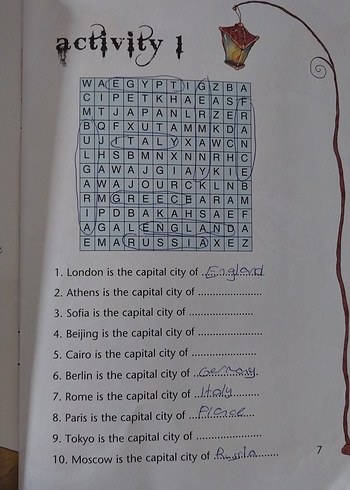 activity 1
W A E G Y P T I G Z B A
C I P E T K H A E A S F
M T J A P A N L R Z E R
B Q F X U T A M M K D A
U J I T A L Y X A W C N
L H S B M N X N N R H C
G A W A J G I A Y K I E
A W A J O U R C K L N B
R M G R E E C E B A R A M
I P D B A K A H S A E F
A G A L E N G L A N D A
E M A R U S S I A X E Z
1. London is the capital city of England
2. Athens is the capital city of ......................
3. Sofia is the capital city of ......................
4. Beijing is the capital city of ......................
5. Cairo is the capital city of ......................
6. Berlin is the capital city of Germany
7. Rome is the capital city of Italy
8. Paris is the capital city of
9. Tokyo is the capital city of ......................
10. Moscow is the capital city of Russia
7